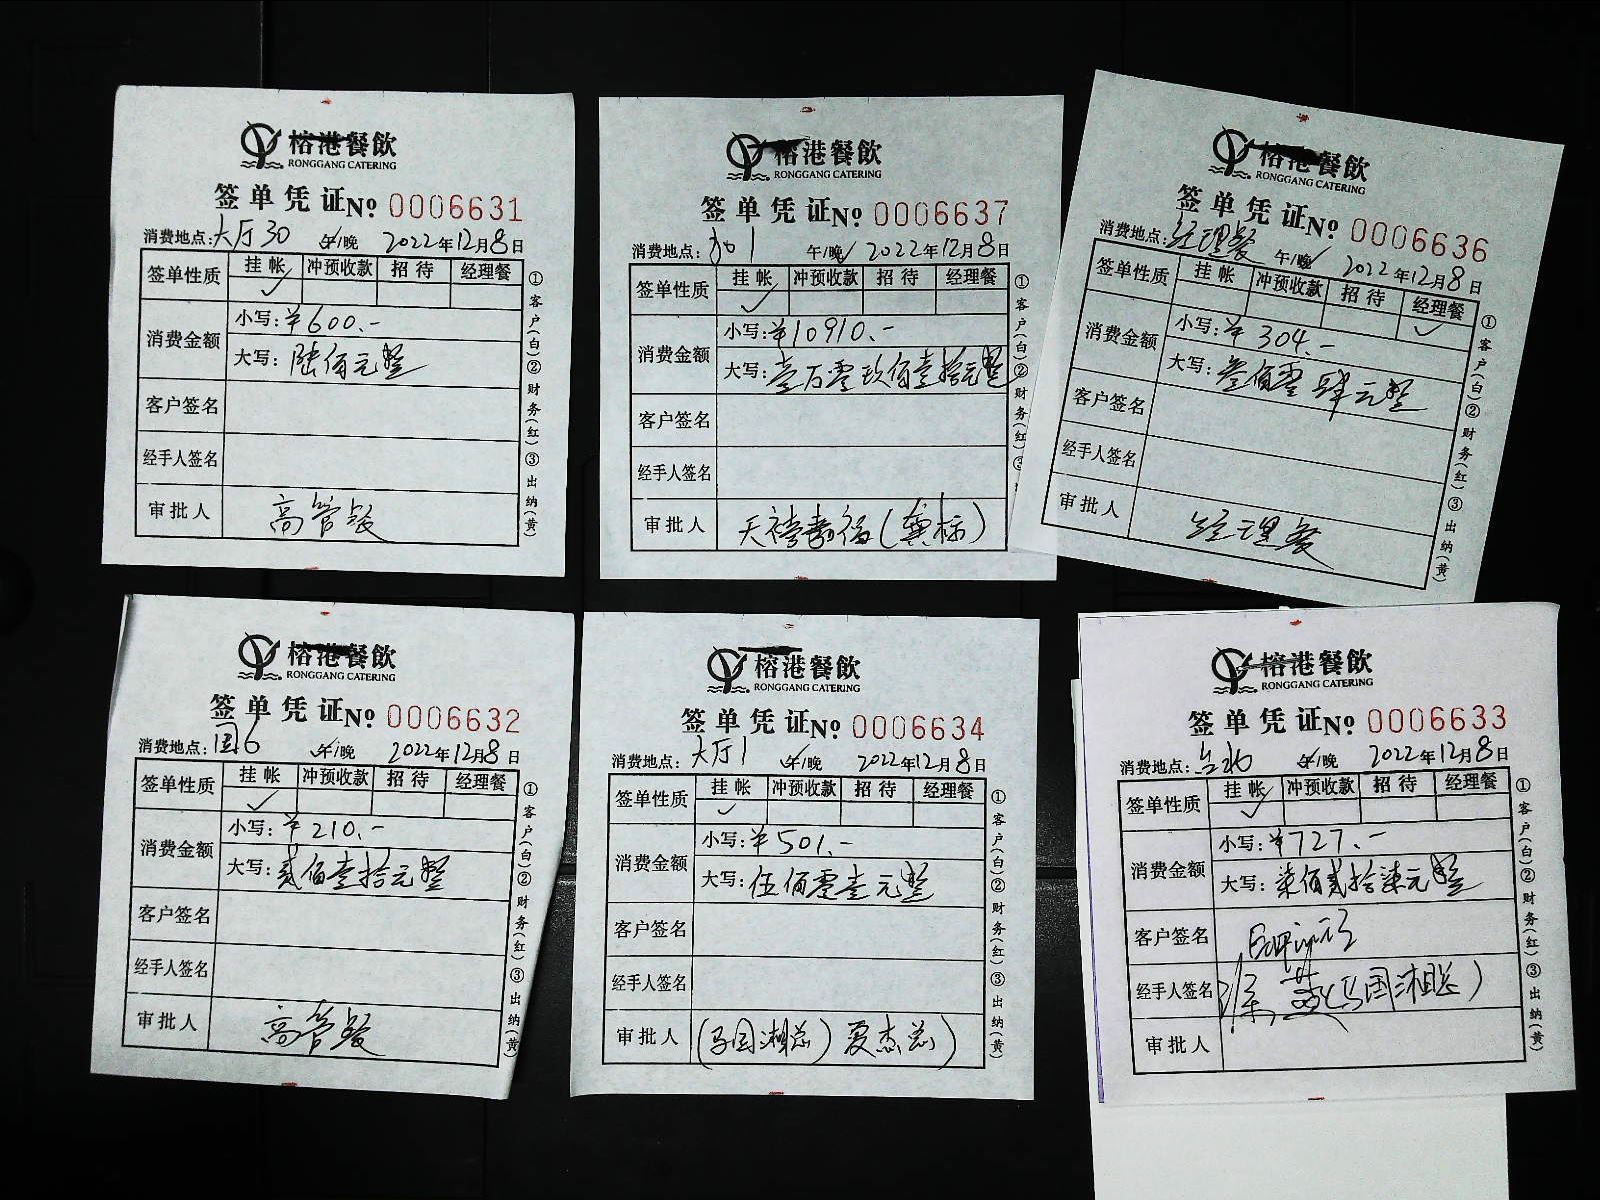 榕港餐飲
RONGGANG CATERING
签单凭证No 0006631
消费地点:大厅30 午/晚 2022年12月8日
签单性质 挂帐 冲预收款 招待 经理餐
消费金额
小写:¥600.-
大写:陆佰元整
客户签名
经手人签名
审批人 高管餐
①客户(白)②财务(红)③出纳(黄)
榕港餐飲
RONGGANG CATERING
签单凭证No 0006637
消费地点: 午/晚 2022年12月8日
签单性质 挂帐 冲预收款 招待 经理餐
消费金额
小写:¥10910.-
大写:壹万零玖佰壹拾元整
客户签名
经手人签名
审批人
①客户(白)②财务(红)③
榕港餐飲
RONGGANG CATERING
签单凭证No 0006636
消费地点:经理餐 午/晚 2022年12月8日
签单性质 挂帐 冲预收款 招待 经理餐
消费金额
小写:¥304.-
大写:叁佰零肆元整
客户签名
经手人签名
审批人 经理餐
①客户(白)②财务(红)③出纳(黄)
榕港餐飲
RONGGANG CATERING
签单凭证No 0006632
消费地点: 午/晚 2022年12月8日
签单性质 挂帐 冲预收款 招待 经理餐
消费金额
小写:¥210.-
大写:贰佰壹拾元整
客户签名
经手人签名
审批人 高管餐
①客户(白)②财务(红)③出纳(黄)
榕港餐飲
RONGGANG CATERING
签单凭证No 0006634
消费地点:大厅1 午/晚 2022年12月8日
签单性质 挂帐 冲预收款 招待 经理餐
消费金额
小写:¥501.-
大写:伍佰零壹元整
客户签名
经手人签名
审批人 (马国湘总)夏杰总)
①客户(白)②财务(红)③出纳(黄)
榕港餐飲
RONGGANG CATERING
签单凭证No 0006633
消费地点: 午/晚 2022年12月8日
签单性质 挂帐 冲预收款 招待 经理餐
消费金额
小写:¥727.-
大写:柒佰贰拾柒元整
客户签名
经手人签名 (马国湘总)
审批人
①客户(白)②财务(红)③出纳(黄)